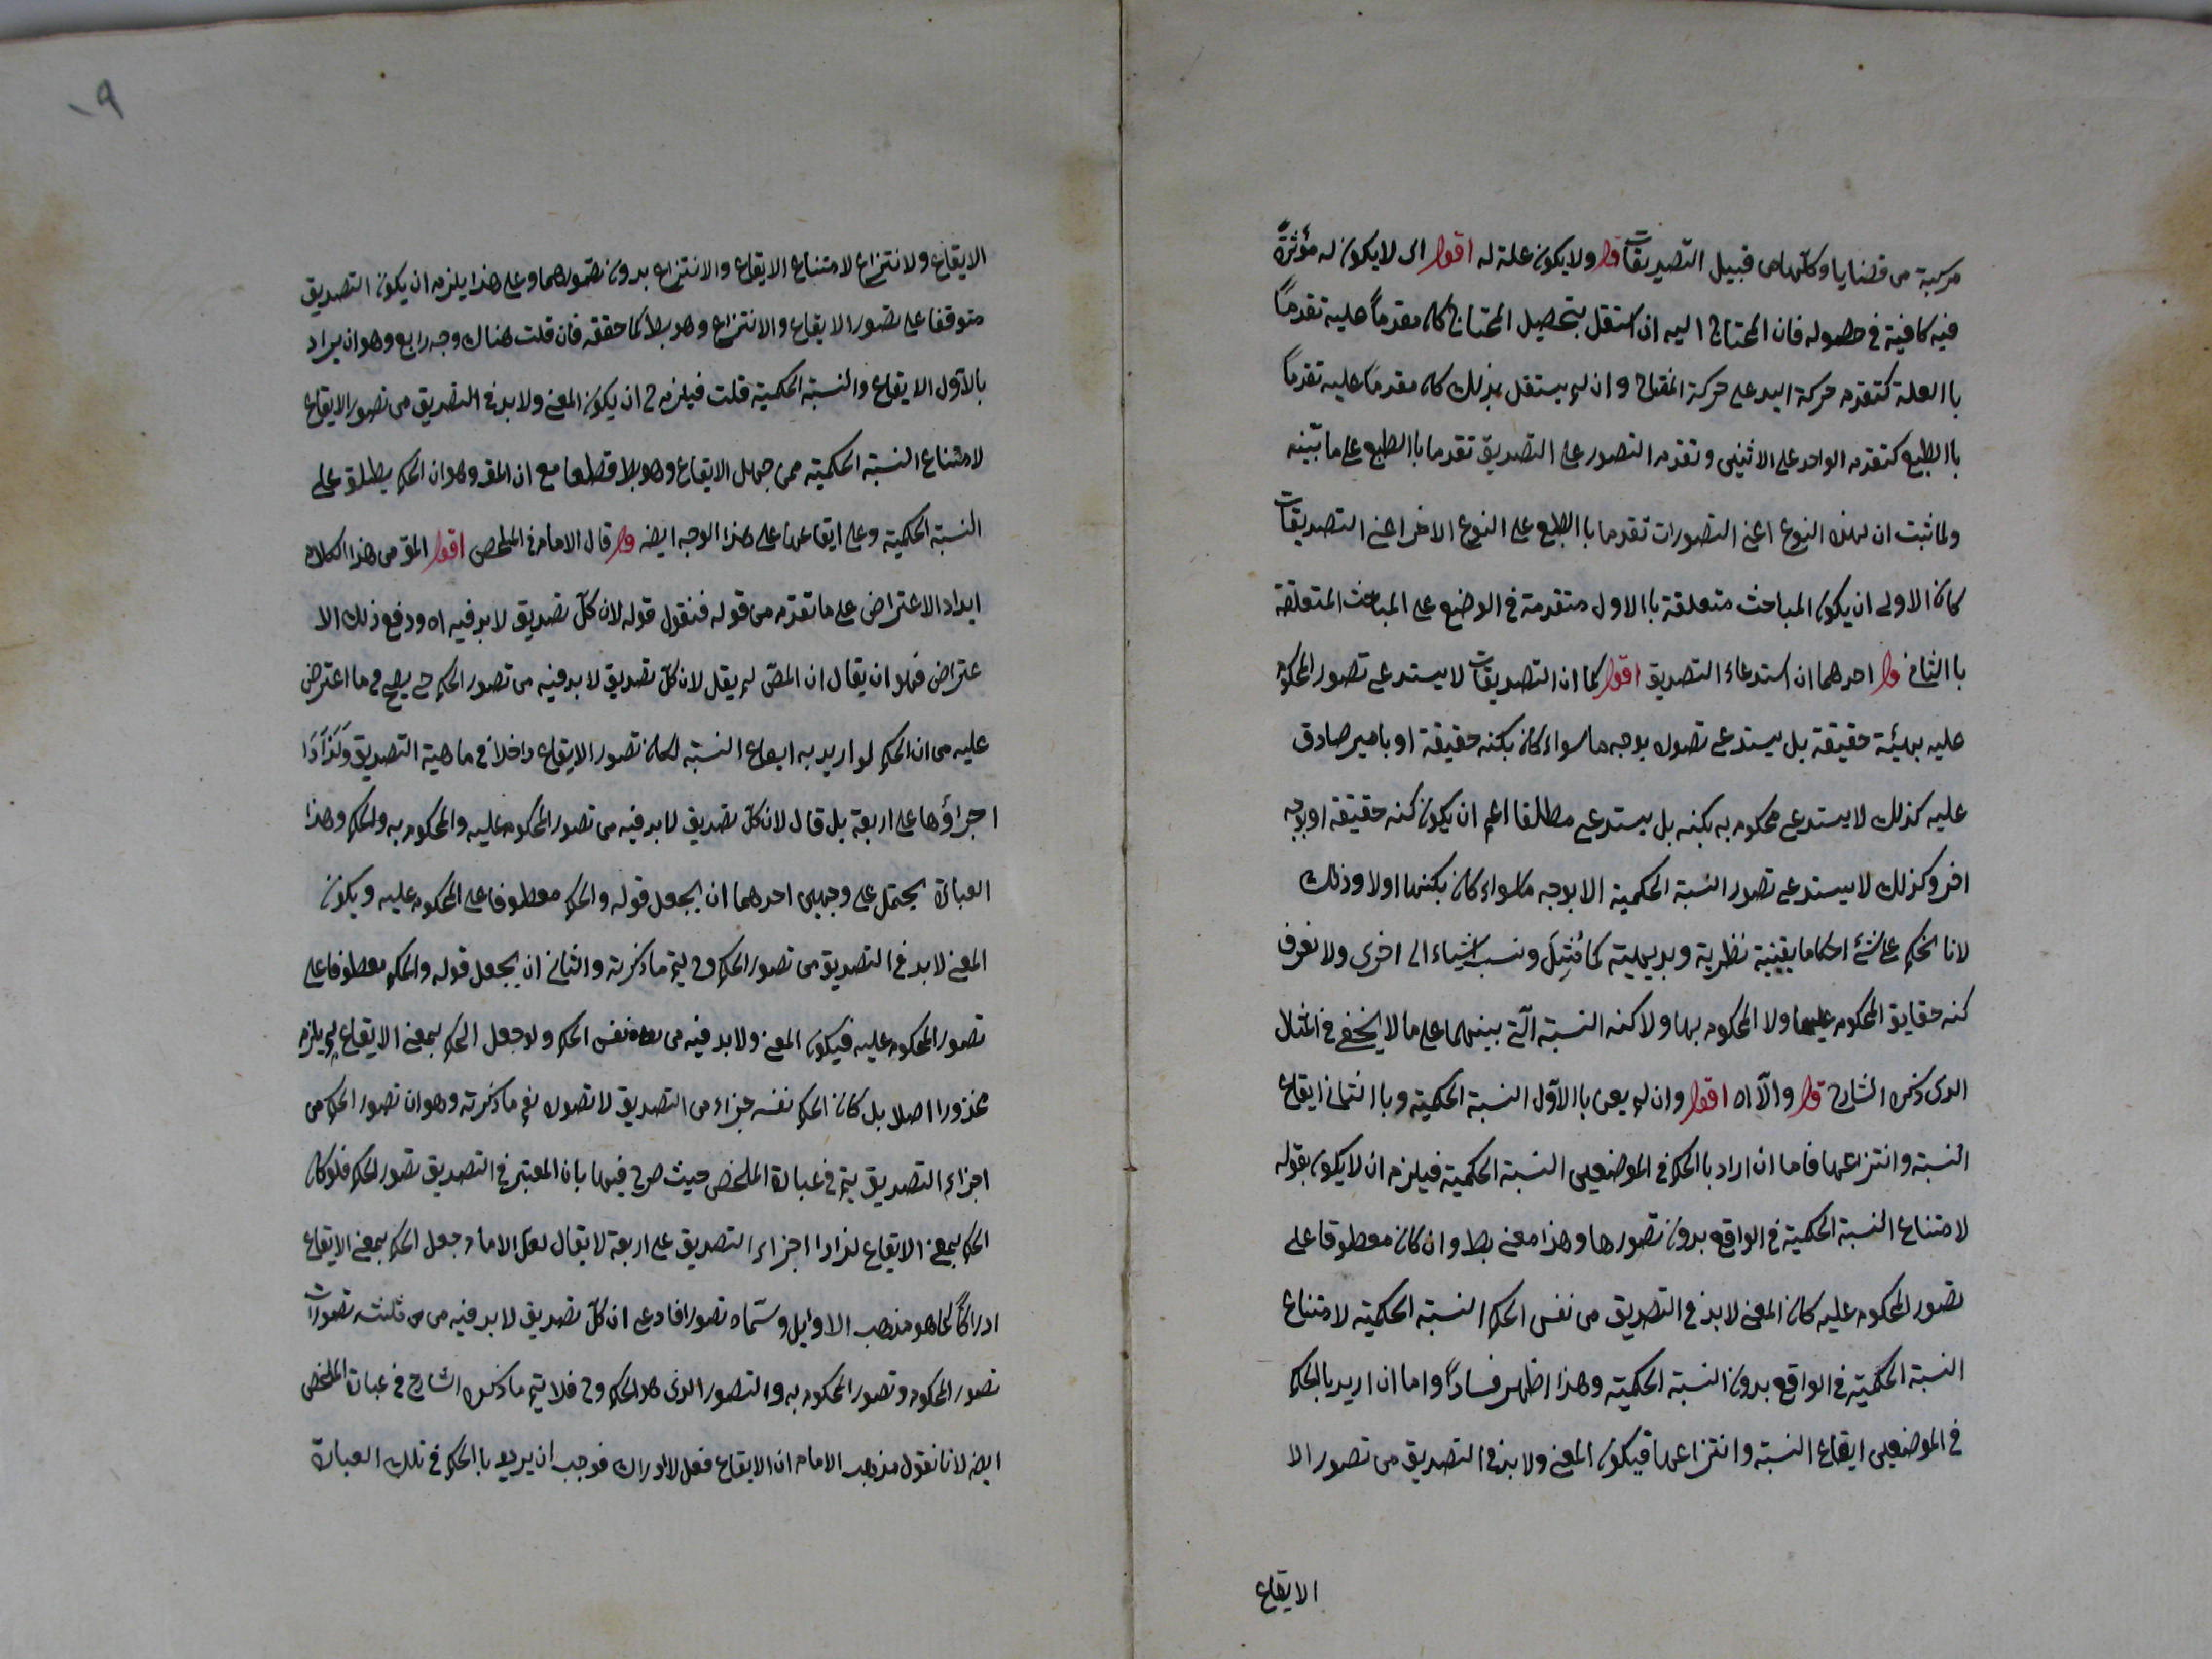 مركبة من قضايا وكلها من قبيل التصديقات قوله ولا يكون علة له اقول اى لا يكون له مؤثرةً
فيه كافية فى حصوله فان المحتاج اليه ان استقل بتحصيل المحتاج كان مقدماً عليه تقدماً
باالعلة كتقدم حركة اليد على حركة المفتاح وان لم يستقل بذلك كان مقدماً عليه تقدماً
باالطبع كتقدم الواحد على الاثنين وتقدم التصور على التصديق تقدما باالطبع على ما بيّنه
ولما ثبت ان لهذه النوع اعنى التصورات تقدما باالطبع على النوع الاخر اعنى التصديقات
كان الاولى ان يكون المباحث متعلقة باالاول متقدمة فى الوضع على المباحث المتعلقة
باالثانى قوله احدهما ان استدعاء التصديق اقول كما ان التصديقات لا يستدعى تصور المحكوم
عليه بهيئة حقيقة بل يستدعى تصوره بوجه ما سواء كان بكنه حقيقة او بامر صادق
عليه كذلك لا يستدعى محكوم به بكنه بل يستدعى مطلقا اعم ان يكون كنه حقيقة او بوجه
اخر وكذلك لا يستدعى تصور النسبة الحكمية الا بوجه ما سواء كان بكنهها اولا وذلك
لانا نحكم على شئ احكاما يقينية نظرية وبديهية كما ونسب اشياء الى اخرى ولا نعرف
كنه حقايق المحكوم عليها ولا المحكوم بها ولا كنه النسبة التى بينهما على ما لا يخفى فى المثال
الذى ذكره الشارح قوله والا اه اقول وان لم يعن باالاوّل النسبة الحكمية وباالثانى ايقاع
النسبة وانتزاعها فاما ان اراد باالحكم فى الموضعين النسبة الحكمية فيلزم ان لا يكون بقوله
لامتناع النسبة الحكمية فى الواقع بدون تصورها وهذا معنى بط وان كان معطوفا على
تصور المحكوم عليه كان المعنى لابد فى التصديق من نفس الحكم النسبة الحكمية لامتناع
النسبة الحكمية فى الواقع بدون النسبة الحكمية وهذا اظهر فساداً واما ان اريد باالحكم
فى الموضعين ايقاع النسبة وانتزاعها فيكون المعنى ولابد فى التصديق من تصور الا
الايقاع
٩
الايقاع ولانتزاع لامتناع الايقاع والانتزاع بدون تصورهما وعلى هذا يلزم ان يكون التصديق
متوقفا على تصور الايقاع والانتزاع وهو بط كما حققه فان قلت هناك وجه رابع وهو ان يراد
بالاوّل الايقاع والنسبة الحكمية قلت فيلزم ح ان يكون المعنى ولابد فى التصديق من تصور الايقاع
لامتناع النسبة الحكمية ممن جهل الايقاع وهو بط قطعا مع ان المقر وهو ان الحكم يطلق على
النسبة الحكمية وعلى ايقاعها على هذا الوجه ايضه قوله قال الامام فى الملخص اقول المقص من هذا الكلام
ايراد الاعتراض على ما تقدم من قوله فنقول قوله لان كلّ تصديق لابد فيه اه ودفع ذلك الا
عتراض فهو ان يقال ان المص لم يقل لان كلّ تصديق لابد فيه من تصور الحكم حتى يصح ما اعترض
عليه من ان الحكم لو اريد به ايقاع النسبة لكان تصور الايقاع داخلا فى ماهية التصديق
اجزاؤها على اربعة بل قال لان كلّ تصديق لابد فيه من تصور المحكوم عليه والمحكوم به والحكم وهذا
العبارة يحتمل على وجهين احدهما ان يجعل قوله والحكم معطوفا على المحكوم عليه ويكون
المعنى لابد فى التصديق من تصور الحكم وح ليتم ما ذكرته والثانى ان يجعل قوله والحكم معطوفا على
تصور المحكوم عليه فيكون المعنى ولابد فيه من نفس الحكم ولو جعل الحكم بمعنى الايقاع لم يلزم
محذورا اصلا بل كان الحكم نفسه جزاء من التصديق لا تصوره نعم ما ذكرته وهو ان تصور الحكم من
اجزاء التصديق يتم فى عبارة الملخص حيث صرح فيها بان المعتبر فى التصديق تصور الحكم فلو كان
الحكم بمعنى الايقاع لزادا اجزاء التصديق على اربعة لا يقال لعل الامام جعل الحكم بمعنى الايقاع
ادراكاً كما هو مذهب الاوايل وسمّاه تصورا فادعى ان كلّ تصديق لابد فيه من ثلثة تصورات
تصور المحكوم وتصور المحكوم به والتصور الذى هو الحكم وح فلا يتم ما ذكره الشارح فى عبارة الملخص
ايضه لانا نقول مذهب الامام ان الايقاع فعل لا ادراك فوجب ان يريد باالحكم فى تلك العبارة